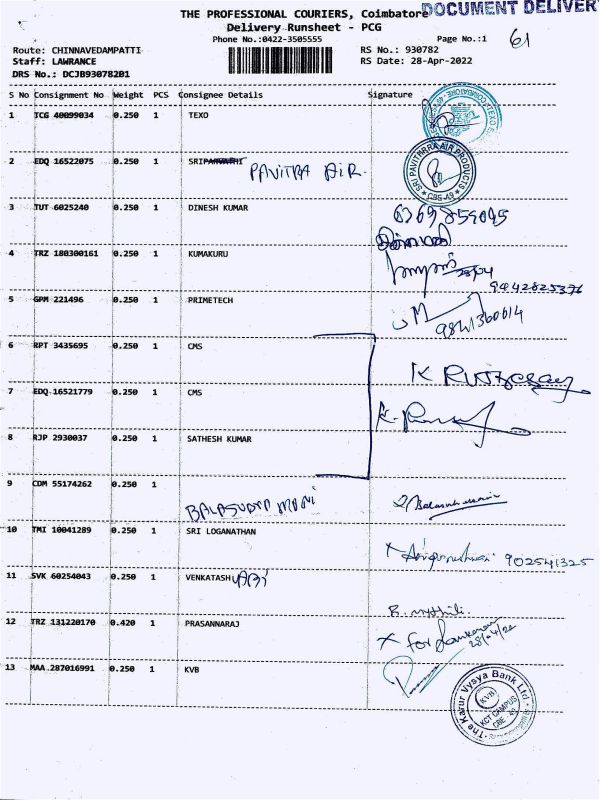 THE PROFESSIONAL COURIERS, Coimbatore
DOCUMENT DELIVER
Delivery Runsheet - PCG
Phone No.:0422-3505555
Page No.:1
61
Route: CHINNAVEDAMPATTI
RS No.: 930782
Staff: LAWRANCE
RS Date: 28-Apr-2022
DRS No.: DCJB93078201
S No Consignment No Weight PCS Consignee Details Signature
1 TCG 40099034 0.250 1 TEXO
2 EDQ 16522075 0.250 1 SRI PAVITRA AIR.
SRI PAVITHRRA AIR PRODUCTS
CBE-49
3 TUT 6025240 0.250 1 DINESH KUMAR
4 TRZ 180300161 0.250 1 KUMAKURU
28/04
9042825376
5 GPM 221496 0.250 1 PRIMETECH
9841360614
6 RPT 3435695 0.250 1 CMS
7 EDQ 16521779 0.250 1 CMS
8 RJP 2930037 0.250 1 SATHESH KUMAR
9 CDM 55174262 0.250 1
BALASUBRAMANI
10 TMI 10041289 0.250 1 SRI LOGANATHAN
902541325
11 SVK 60254043 0.250 1 VENKATASH
B. mythili
12 TRZ 131220170 0.420 1 PRASANNARAJ
X for
28/4/22
13 MAA 287016991 0.250 1 KVB
The Karur Vysya Bank Ltd.
KVB
KCT CAMPUS
CBE - 49